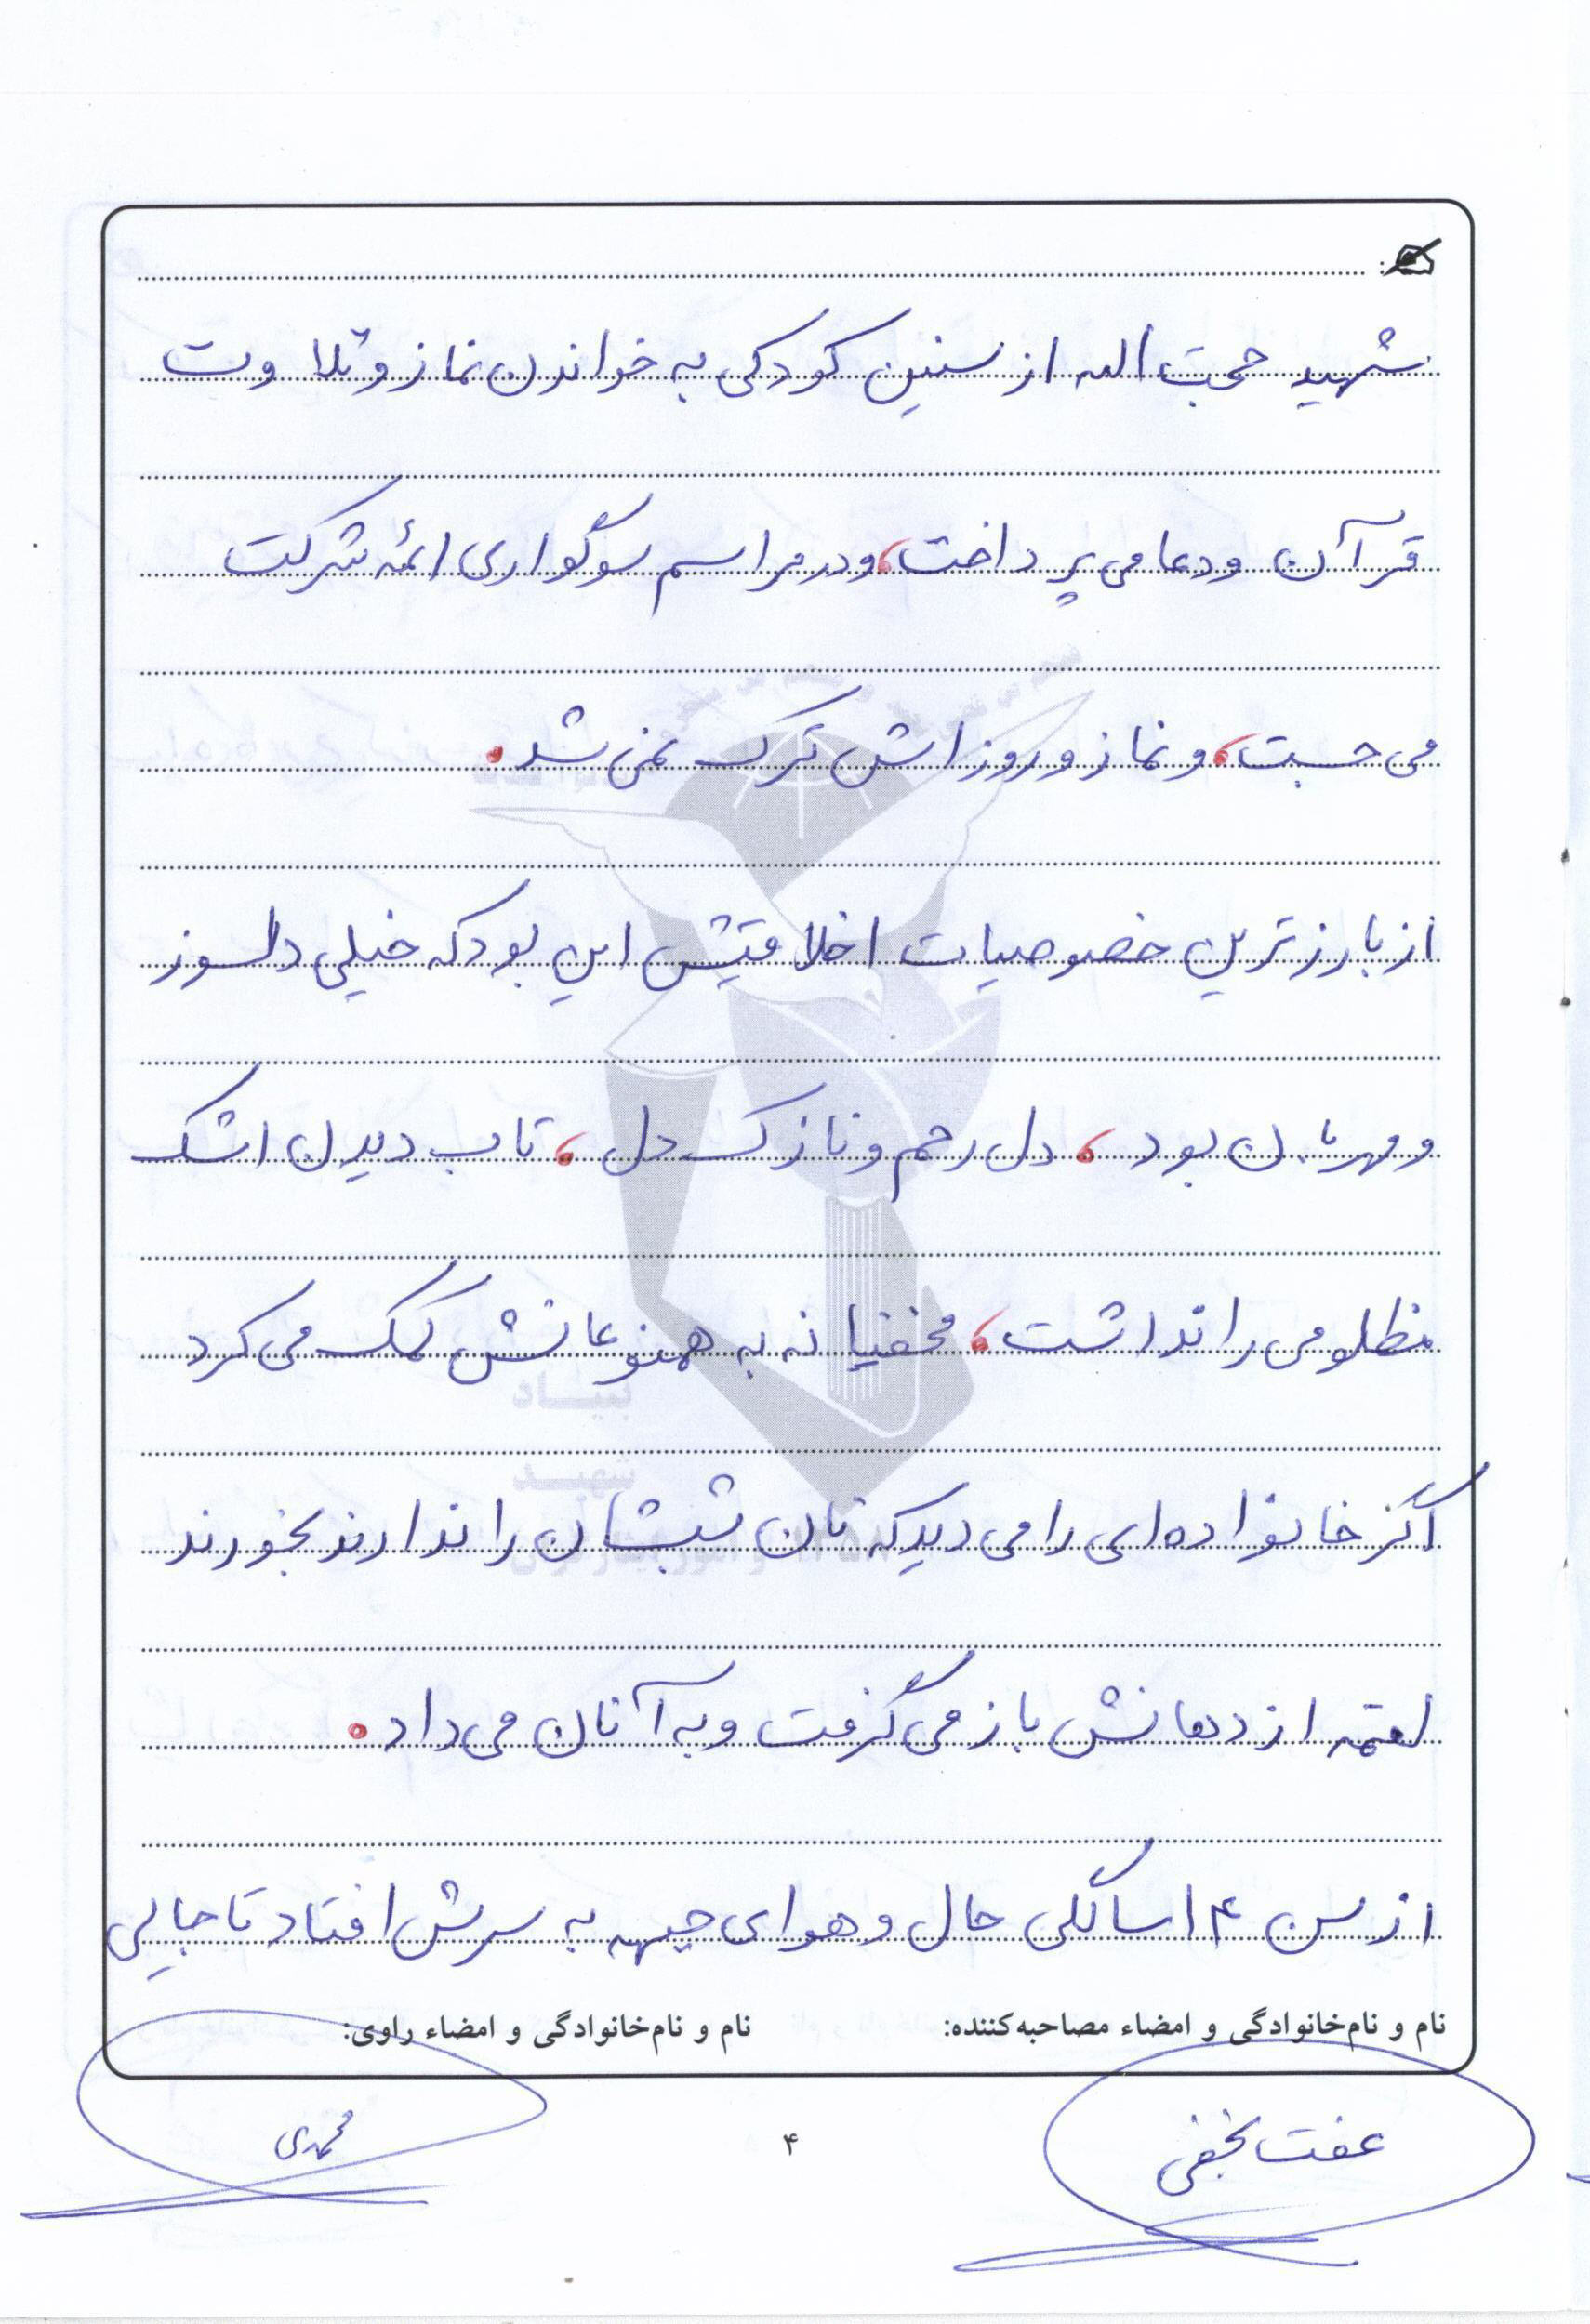 شهید حجت اله از سنین کودکی به خواندن نماز و تلاوت
قرآن و دعا می پرداخت، و در مراسم سوگواری ائمه شرکت
می جست، و نماز و روزاش ترک نمی شد.
از بارزترین خصوصیات اخلاقیش این بود که خیلی دلسوز
و مهربان بود، دل رحم و نازک دل، تاب دیدن اشک
مظلومی را نداشت، مخفیانه به همنوعانش کمک می کرد
اگر خانواده ای را می دید که نان شبشان را ندارند بخورند
لقمه از دهانش باز می گرفت و به آنان می داد.
از سن ۱۴ سالگی حال و هوای جبهه به سرش افتاد تا جایی
نام و نام‌خانوادگی و امضاء مصاحبه‌کننده: نام و نام‌خانوادگی و امضاء راوی:
عفت نجفی ۴ محمدی
بنیاد
شهید